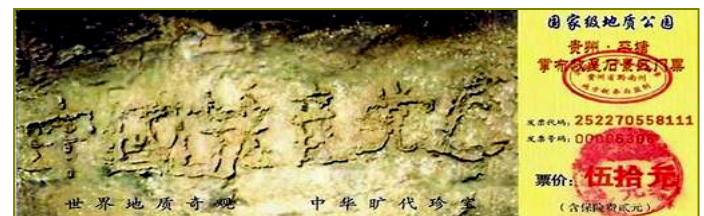 中国共产党
世界地质奇观 中华旷代珍宝
国家级地质公园
贵州·平塘
掌布藏字石景区门票
贵州省黔南州
地方税务局监制
发票代码: 252270558111
发票号码: 00006306
票价: 伍拾元
(含保险费贰元)